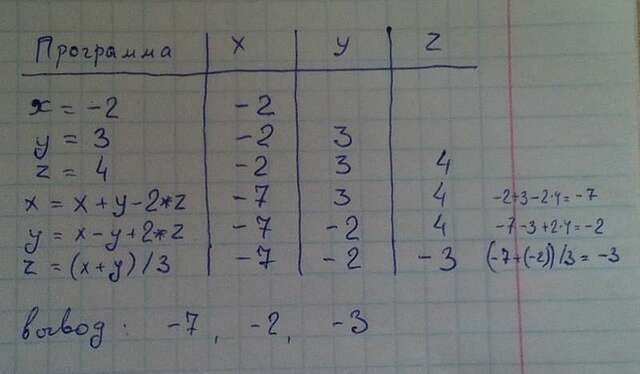 Программа x y z
x = -2 -2
y = 3 -2 3
z = 4 -2 3 4
x = x + y - 2*z -7 3 4 -2+3-2·4=-7
y = x - y + 2*z -7 -2 4 -7-3+2·4=-2
z = (x+y)/3 -7 -2 -3 (-7+(-2))/3 = -3
вывод: -7, -2, -3